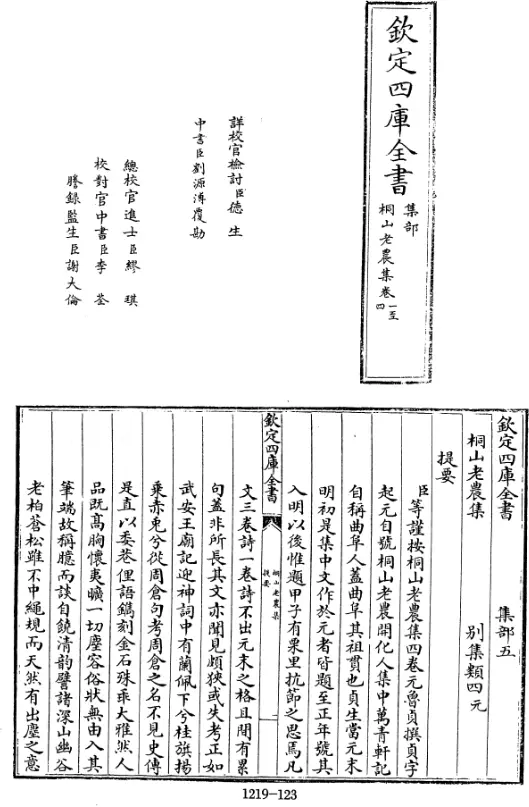 欽定四庫全書
集部
桐山老農集卷一至四
詳校官檢討臣德生
中書臣劉源溥覆勘
總校官進士臣繆琪
校對官中書臣李荃
謄錄監生臣謝大倫
欽定四庫全書 集部五
桐山老農集 別集類四元
提要
臣等謹按桐山老農集四卷元魯貞撰貞字
起元自號桐山老農開化人集中萬青軒記
自稱曲阜人蓋曲阜其祖貫也貞生當元末
明初是集中文作於元者皆題至正年號其
入明以後惟題甲子有栗里抗節之思焉凡
欽定四庫全書
桐山老農集
提要
一
文三卷詩一卷詩不出元末之格且間有累
句蓋非所長其文亦聞見頗狹或失考正如
武安王廟記迎神詞中有蘭佩下兮桂旗揚
乘赤兎兮從周倉句考周倉之名不見史傳
是直以委巷俚語鐫刻金石殊乖大雅然人
品既高胸懷夷曠一切塵容俗狀無由入其
筆端故稱臆而談自饒清韵譬諸深山幽谷
老柏蒼松雖不中繩規而天然有出塵之意
1219-123